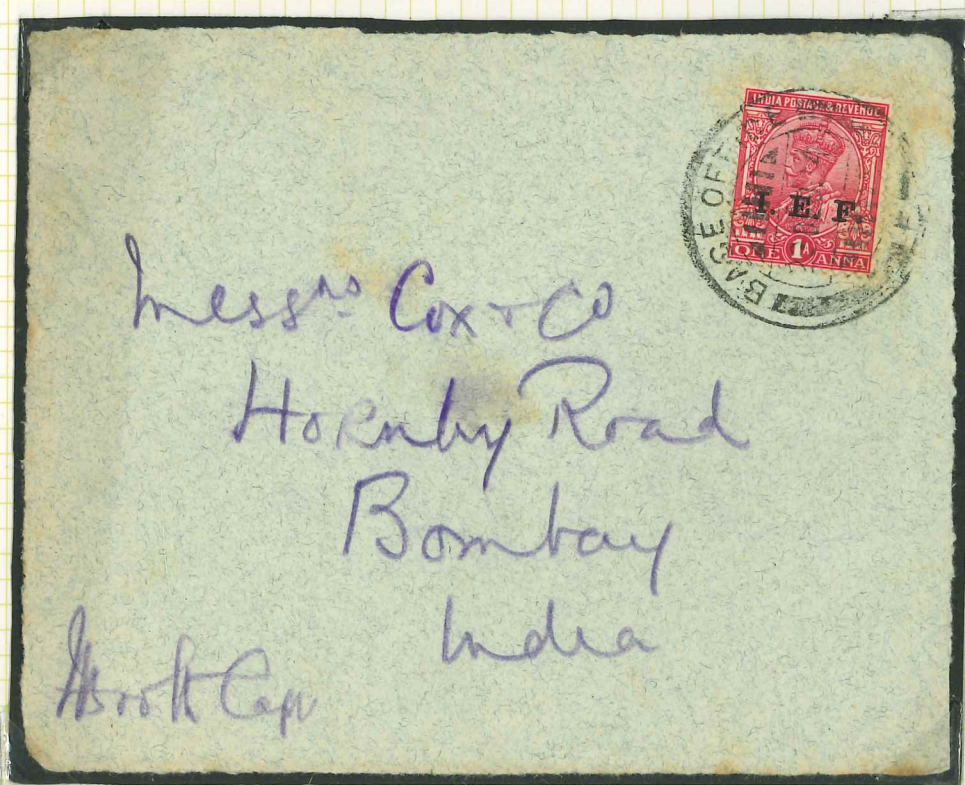 INDIA POSTAGE & REVENUE
I. E. F.
ONE 1A ANNA
BASE OFFICE
Messrs Cox & Co
Hornby Road
Bombay
India
Capt